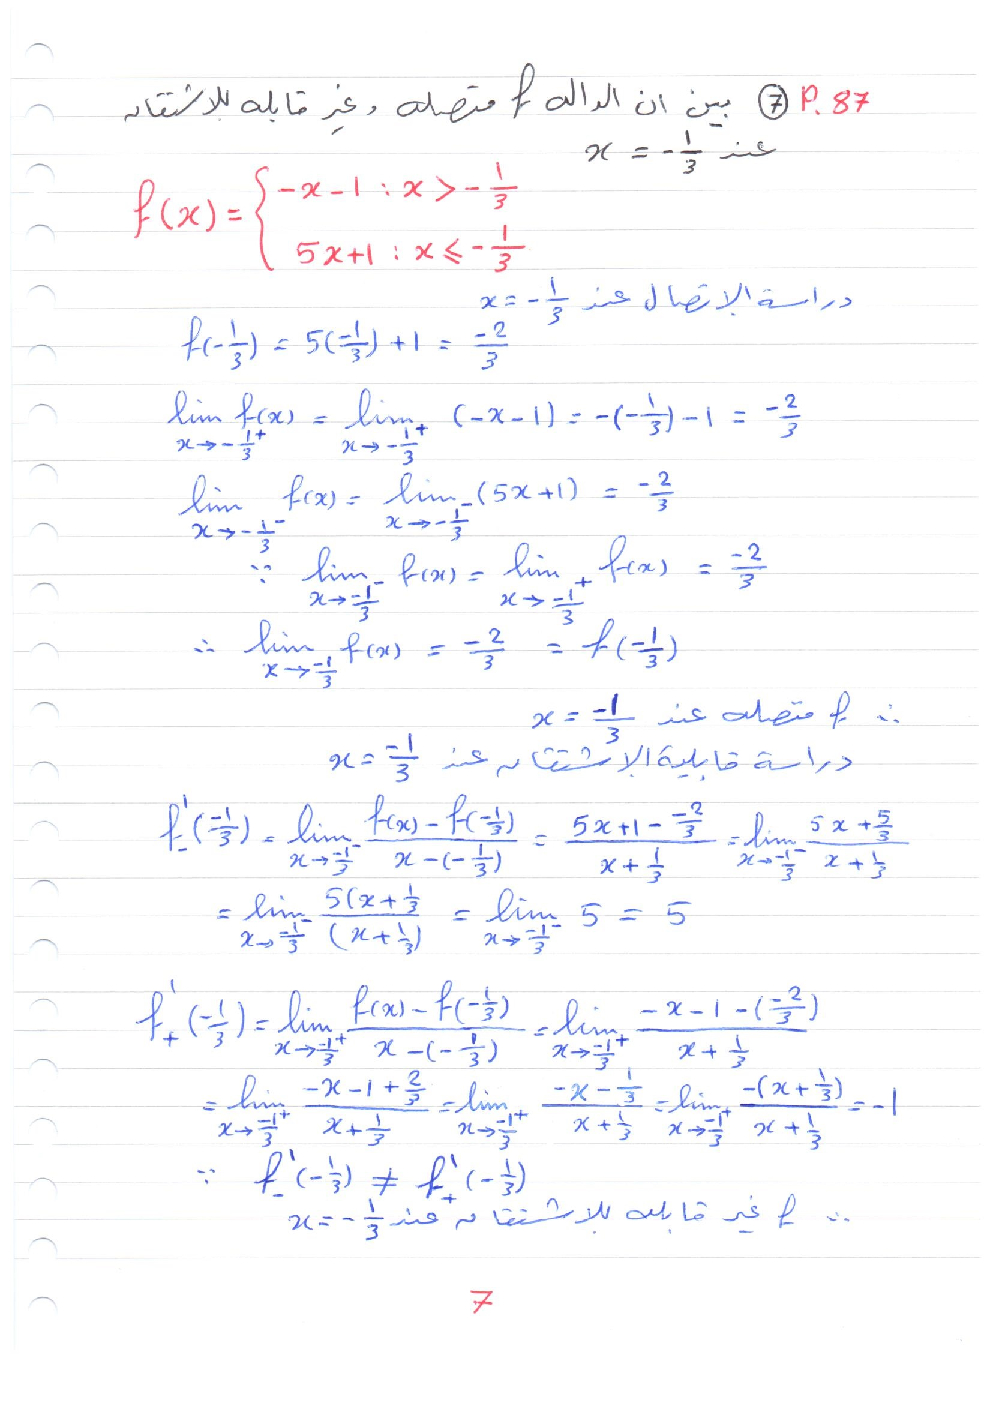 P. 87 ⑦ بين ان الداله f متصله وغير قابله للاشتقاق
عند x = -1/3
f(x) = { -x-1 : x > -1/3
5x+1 : x ≤ -1/3
دراسة الاتصال عند x = -1/3
f(-1/3) = 5(-1/3) + 1 = -2/3
lim x→-1/3⁺ f(x) = lim x→-1/3⁺ (-x-1) = -(-1/3) - 1 = -2/3
lim x→-1/3⁻ f(x) = lim x→-1/3⁻ (5x+1) = -2/3
∵ lim x→-1/3⁻ f(x) = lim x→-1/3⁺ f(x) = -2/3
∴ lim x→-1/3 f(x) = -2/3 = f(-1/3)
∴ f متصله عند x = -1/3
دراسة قابلية الاشتقاق عند x = -1/3
f'₋(-1/3) = lim x→-1/3⁻ (f(x) - f(-1/3))/(x-(-1/3)) = (5x+1 - -2/3)/(x + 1/3) = lim x→-1/3⁻ (5x + 5/3)/(x + 1/3)
= lim x→-1/3⁻ 5(x + 1/3/(x + 1/3) = lim x→-1/3⁻ 5 = 5
f'₊(-1/3) = lim x→-1/3⁺ (f(x) - f(-1/3))/(x-(-1/3)) = lim x→-1/3⁺ (-x-1-(-2/3))/(x + 1/3)
= lim x→-1/3⁺ (-x-1+2/3)/(x + 1/3) = lim x→-1/3⁺ (-x - 1/3)/(x + 1/3) = lim x→-1/3⁺ -(x + 1/3)/(x + 1/3) = -1
∵ f'₋(-1/3) ≠ f'₊(-1/3)
∴ f غير قابله للاشتقاق عند x = -1/3
7